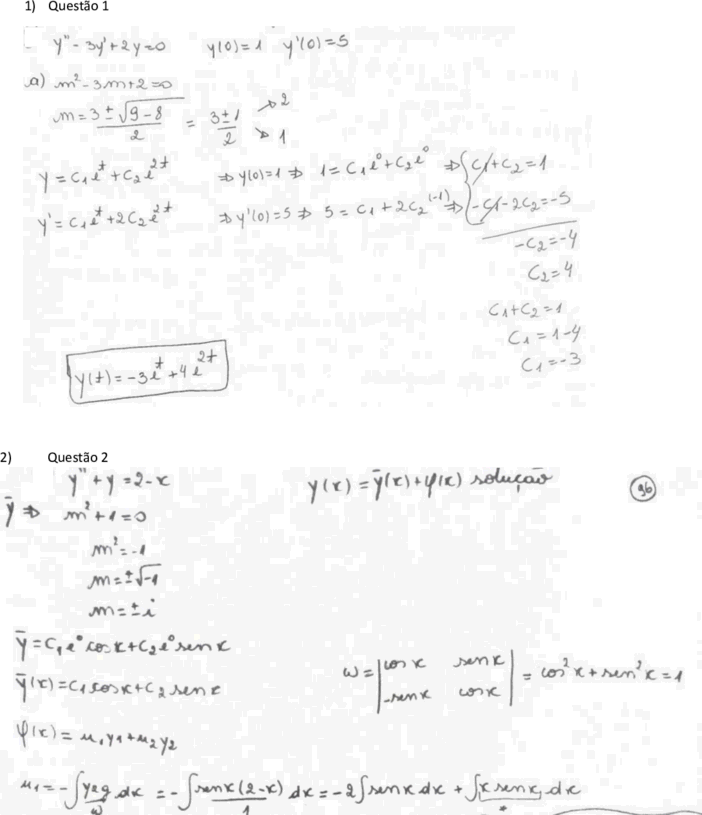 1) Questão 1
y'' - 3y' + 2y = 0 y(0) = 1 y'(0) = 5
a) m² - 3m + 2 = 0
m = (3 ± √(9 - 8))/2 = (3 ± 1)/2 → 2 → 1
y = C₁e^t + C₂e^(2t) ⇒ y(0) = 1 ⇒ 1 = C₁e⁰ + C₂e⁰ ⇒ { C₁ + C₂ = 1
y' = C₁e^t + 2C₂e^(2t) ⇒ y'(0) = 5 ⇒ 5 = C₁ + 2C₂ (-1) ⇒ { -C₁ - 2C₂ = -5
-C₂ = -4
C₂ = 4
C₁ + C₂ = 1
C₁ = 1 - 4
C₁ = -3
y(t) = -3e^t + 4e^(2t)
2) Questão 2
y'' + y = 2 - x y(x) = ȳ(x) + φ(x) solução 36
ȳ ⇒ m² + 1 = 0
m² = -1
m = ±√-1
m = ±i
ȳ = C₁e⁰ cos x + C₂e⁰ sen x
ȳ(x) = C₁ cos x + C₂ sen x
ω = | cos x sen x |
| -sen x cos x | = cos² x + sen² x = 1
φ(x) = u₁y₁ + u₂y₂
u₁ = -∫ (y₂g)/ω dx = -∫ (sen x (2 - x))/1 dx = -2∫ sen x dx + ∫ x sen x dx
*